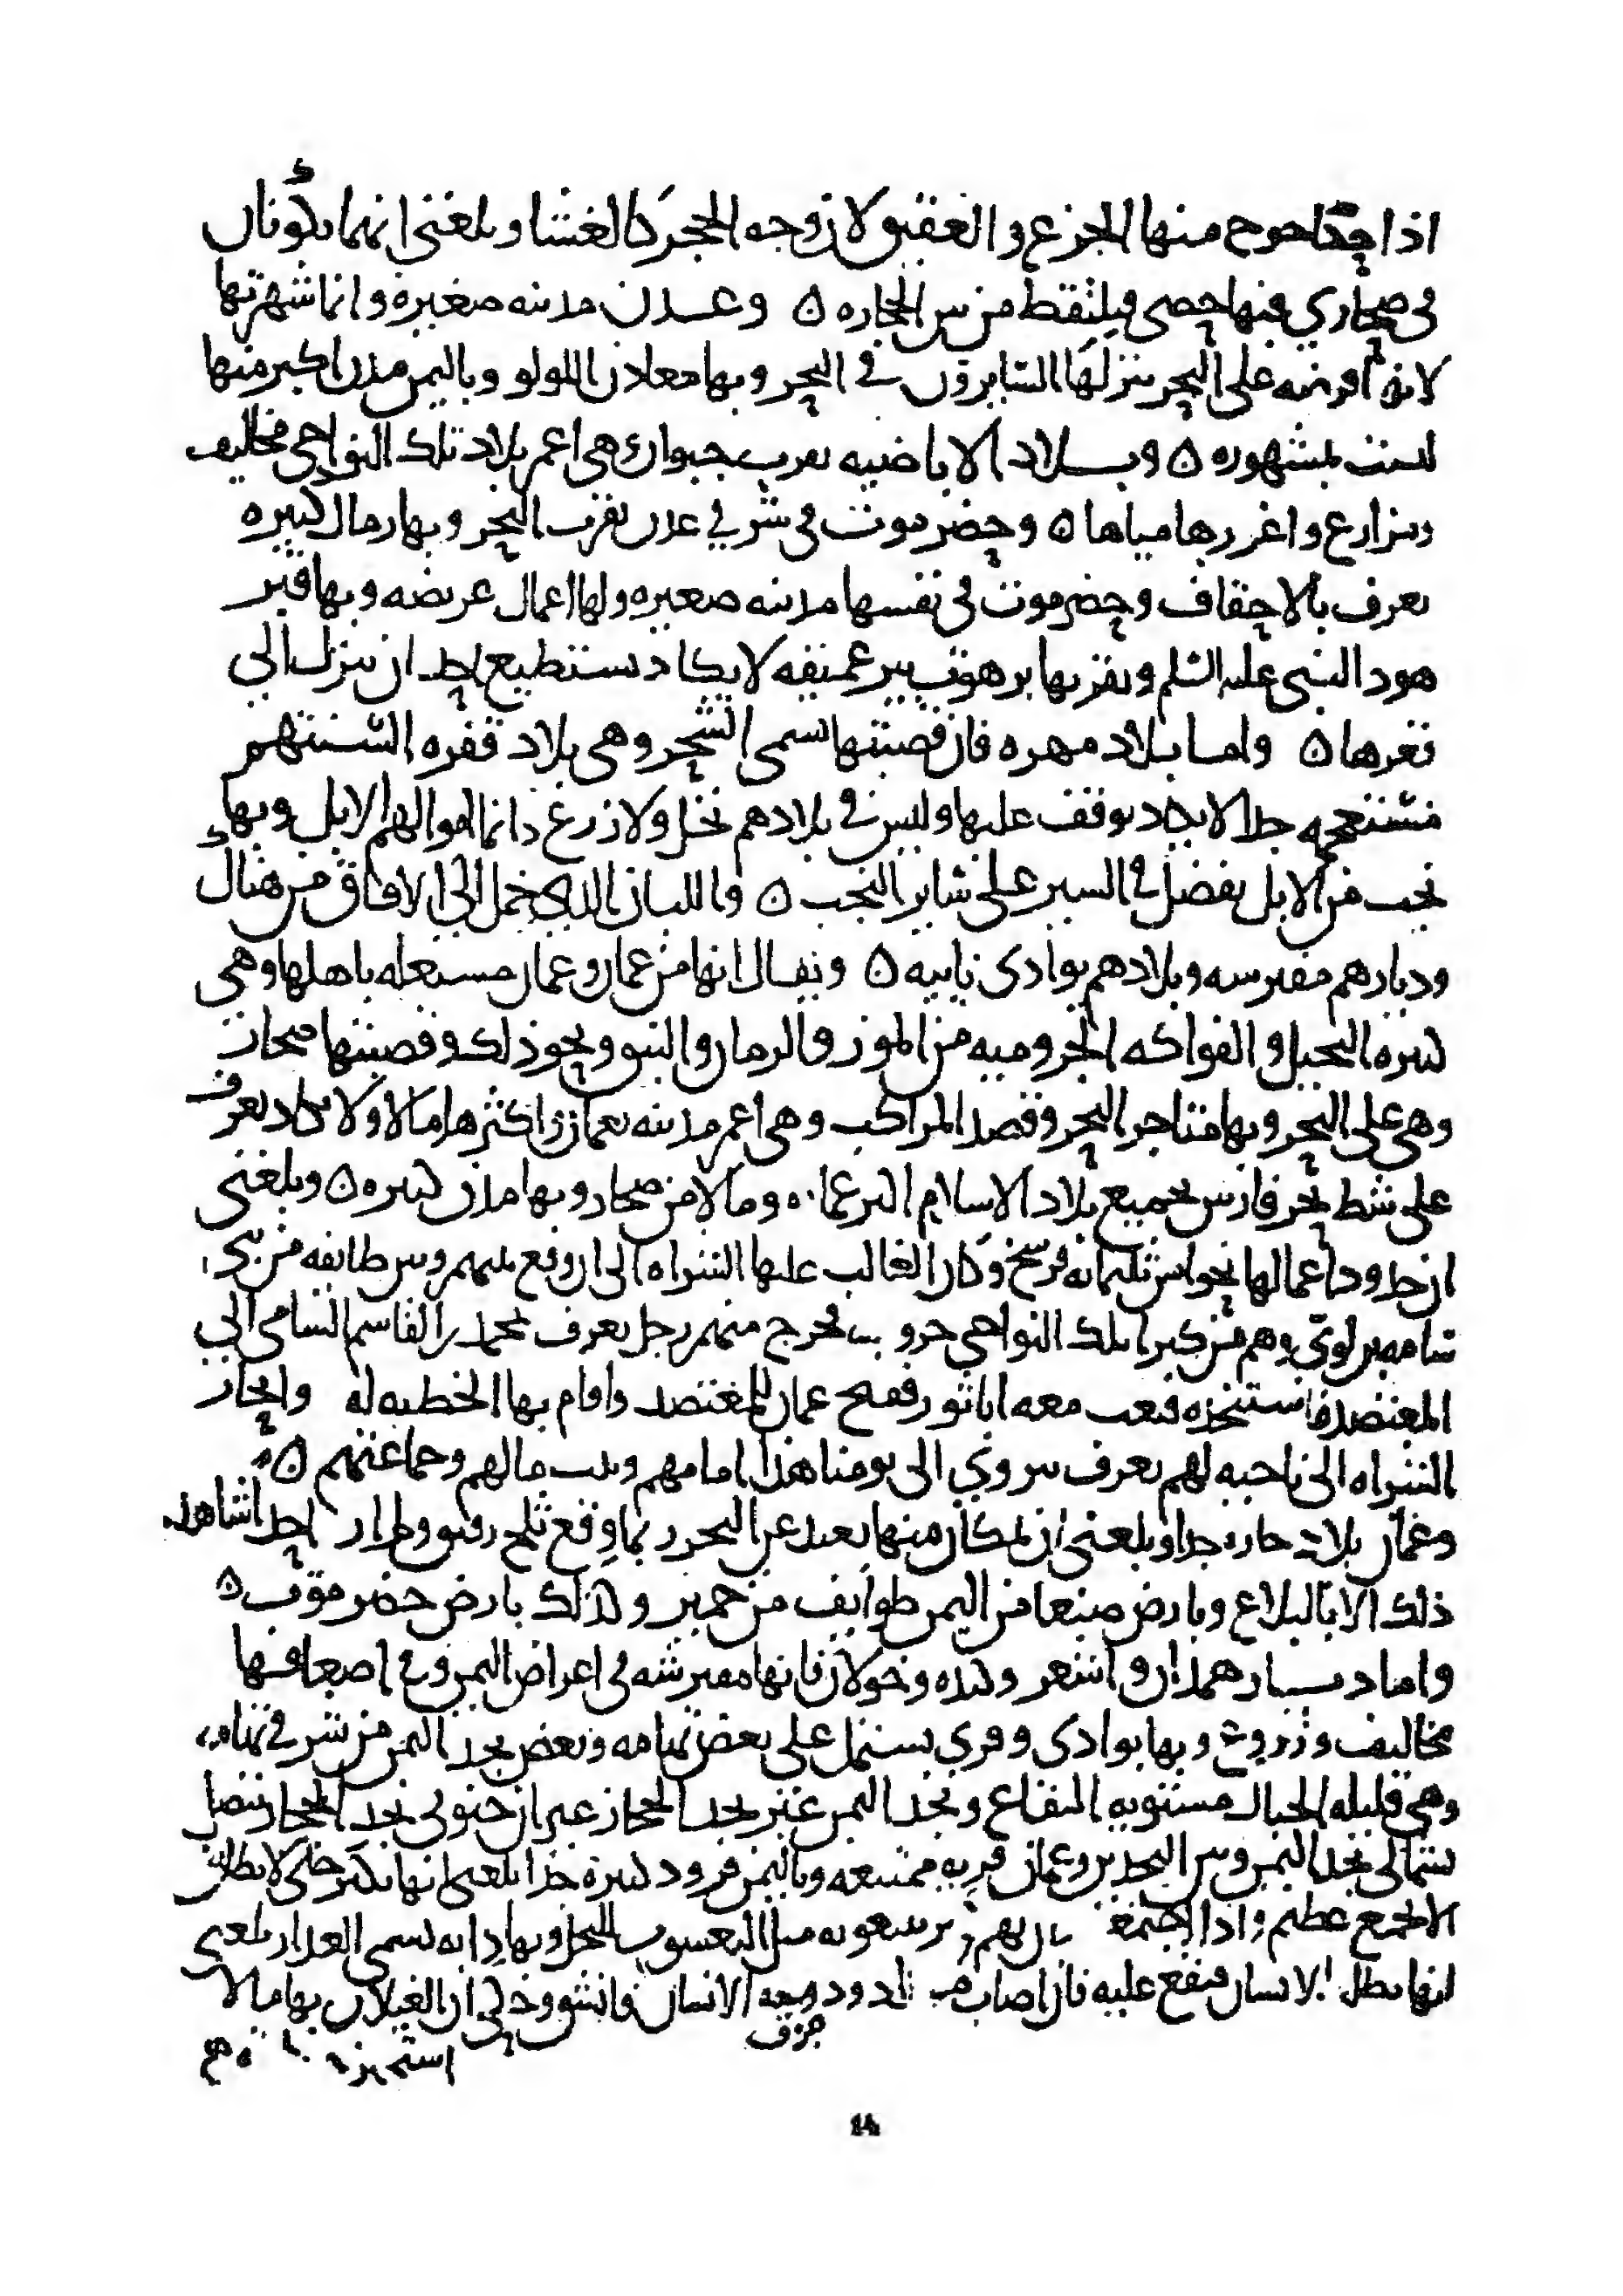 اذا حكا خرج منها الجزع والعقيق لان وجه الحجر كالغشا وبلغني انهما يكونان
في صحاري فيها حصى فيلتقط من بين الحجاره ٥ وعدن مدينه صغيره وانما شهرتها
لانها فرضه على البحر ينزلها السايرون في البحر وبها معادن اللولو وباليمن مدن اكبر منها
ليست بمشهوره ٥ وبلاد الاباضيه بقرب خيوان هي اعمر بلاد تلك النواحي مخاليف
ومزارع واغزرها مياها ٥ وحضرموت في شرقي عدن بقرب البحر وبها رمال كثيره
تعرف بالاحقاف وحضرموت في نفسها مدينه صغيره ولها اعمال عريضه وبها قبر
هود النبي عليه السلم وبقربها برهوت بير عميقه لا يكاد يستطيع احد ان ينزل الى
قعرها ٥ واما بلاد مهره فان قصبتها تسمى الشحر وهي بلاد قفره السنتهم
مستعجمه جدا لا يكاد يوقف عليها وليس في بلادهم نخل ولا زرع وانما اموالهم الابل وبها
نجب من الابل تفضل في السير على ساير النجب ٥ واللبان الذي يحمل الى الافاق من هناك
وديارهم مفترشه وبلادهم بوادي ناييه ٥ ويقال انها من عمان وعمان مستقله باهلها وهي
كثيره النخيل والفواكه الجروميه من الموز والرمان والنبق ونحو ذلك وقصبتها صحار
وهي على البحر وبها متاجر البحر وقصد المراكب وهي اعمر مدينه بعمان واكثرها مالا ولا تكاد تعرف
على شط بحر فارس بجميع بلاد الاسلام اكثر عماره ومالا من صحار وبها مدن كثيره ٥ وبلغني
ان حدود اعمالها نحو من ثلثمايه فرسخ وكان الغالب عليها الشراه الى ان وقع بينهم وبين طايفه من بني
سامه بن لوي وهم من كبرا تلك النواحي حروب فخرج منهم رجل يعرف بمحمد بن القاسم السامي الى
المعتضد فاستنجزه فبعث معه ابا ثور ففتح عمان للمعتضد واقام بها الخطبه له وانحاز
الشراه الى ناحيه لهم تعرف بنزوي الى يومنا هذا امامهم وبيت مالهم وجماعتهم ٥
وعمان بلاد حاره جدا وبلغني ان بمكان منها بعيد عن البحر ربما وقع ثلج رقيق ولم ار احدا شاهد
ذلك الا بالبلاغ وبارض صنعا من اليمن طوايف من حمير وكذلك بارض حضرموت ٥
واما ديار همدان واشعر وكنده وخولان فانها مفترشه في اعراض اليمن وفي اضعافها
مخاليف وزروع وبها بوادي وقرى يشتمل على بعض تهامه وبعض نجد اليمن من شرقي تهامه
وهي قليله الجبال مستويه البقاع ونجد اليمن غير نجد الحجاز غير ان جنوبي نجد الحجاز يتصل
بشمالي نجد اليمن وبين النجدين وعمان بريه ممتنعه وباليمن قرود كثيره جدا بلغني انها تكثر حتى لا تطاق
الا بجمع عظيم واذا اجتمعت كان لهم كبير يتبعونه مثل اليعسوب للنحل وبها دابه تسمى العدار بلغني
انها تطلب الانسان فتقع عليه فان اصاب منه دود جوف الانسان فانشق وحكي ان الغيلان بها ما لا
استجيز
14